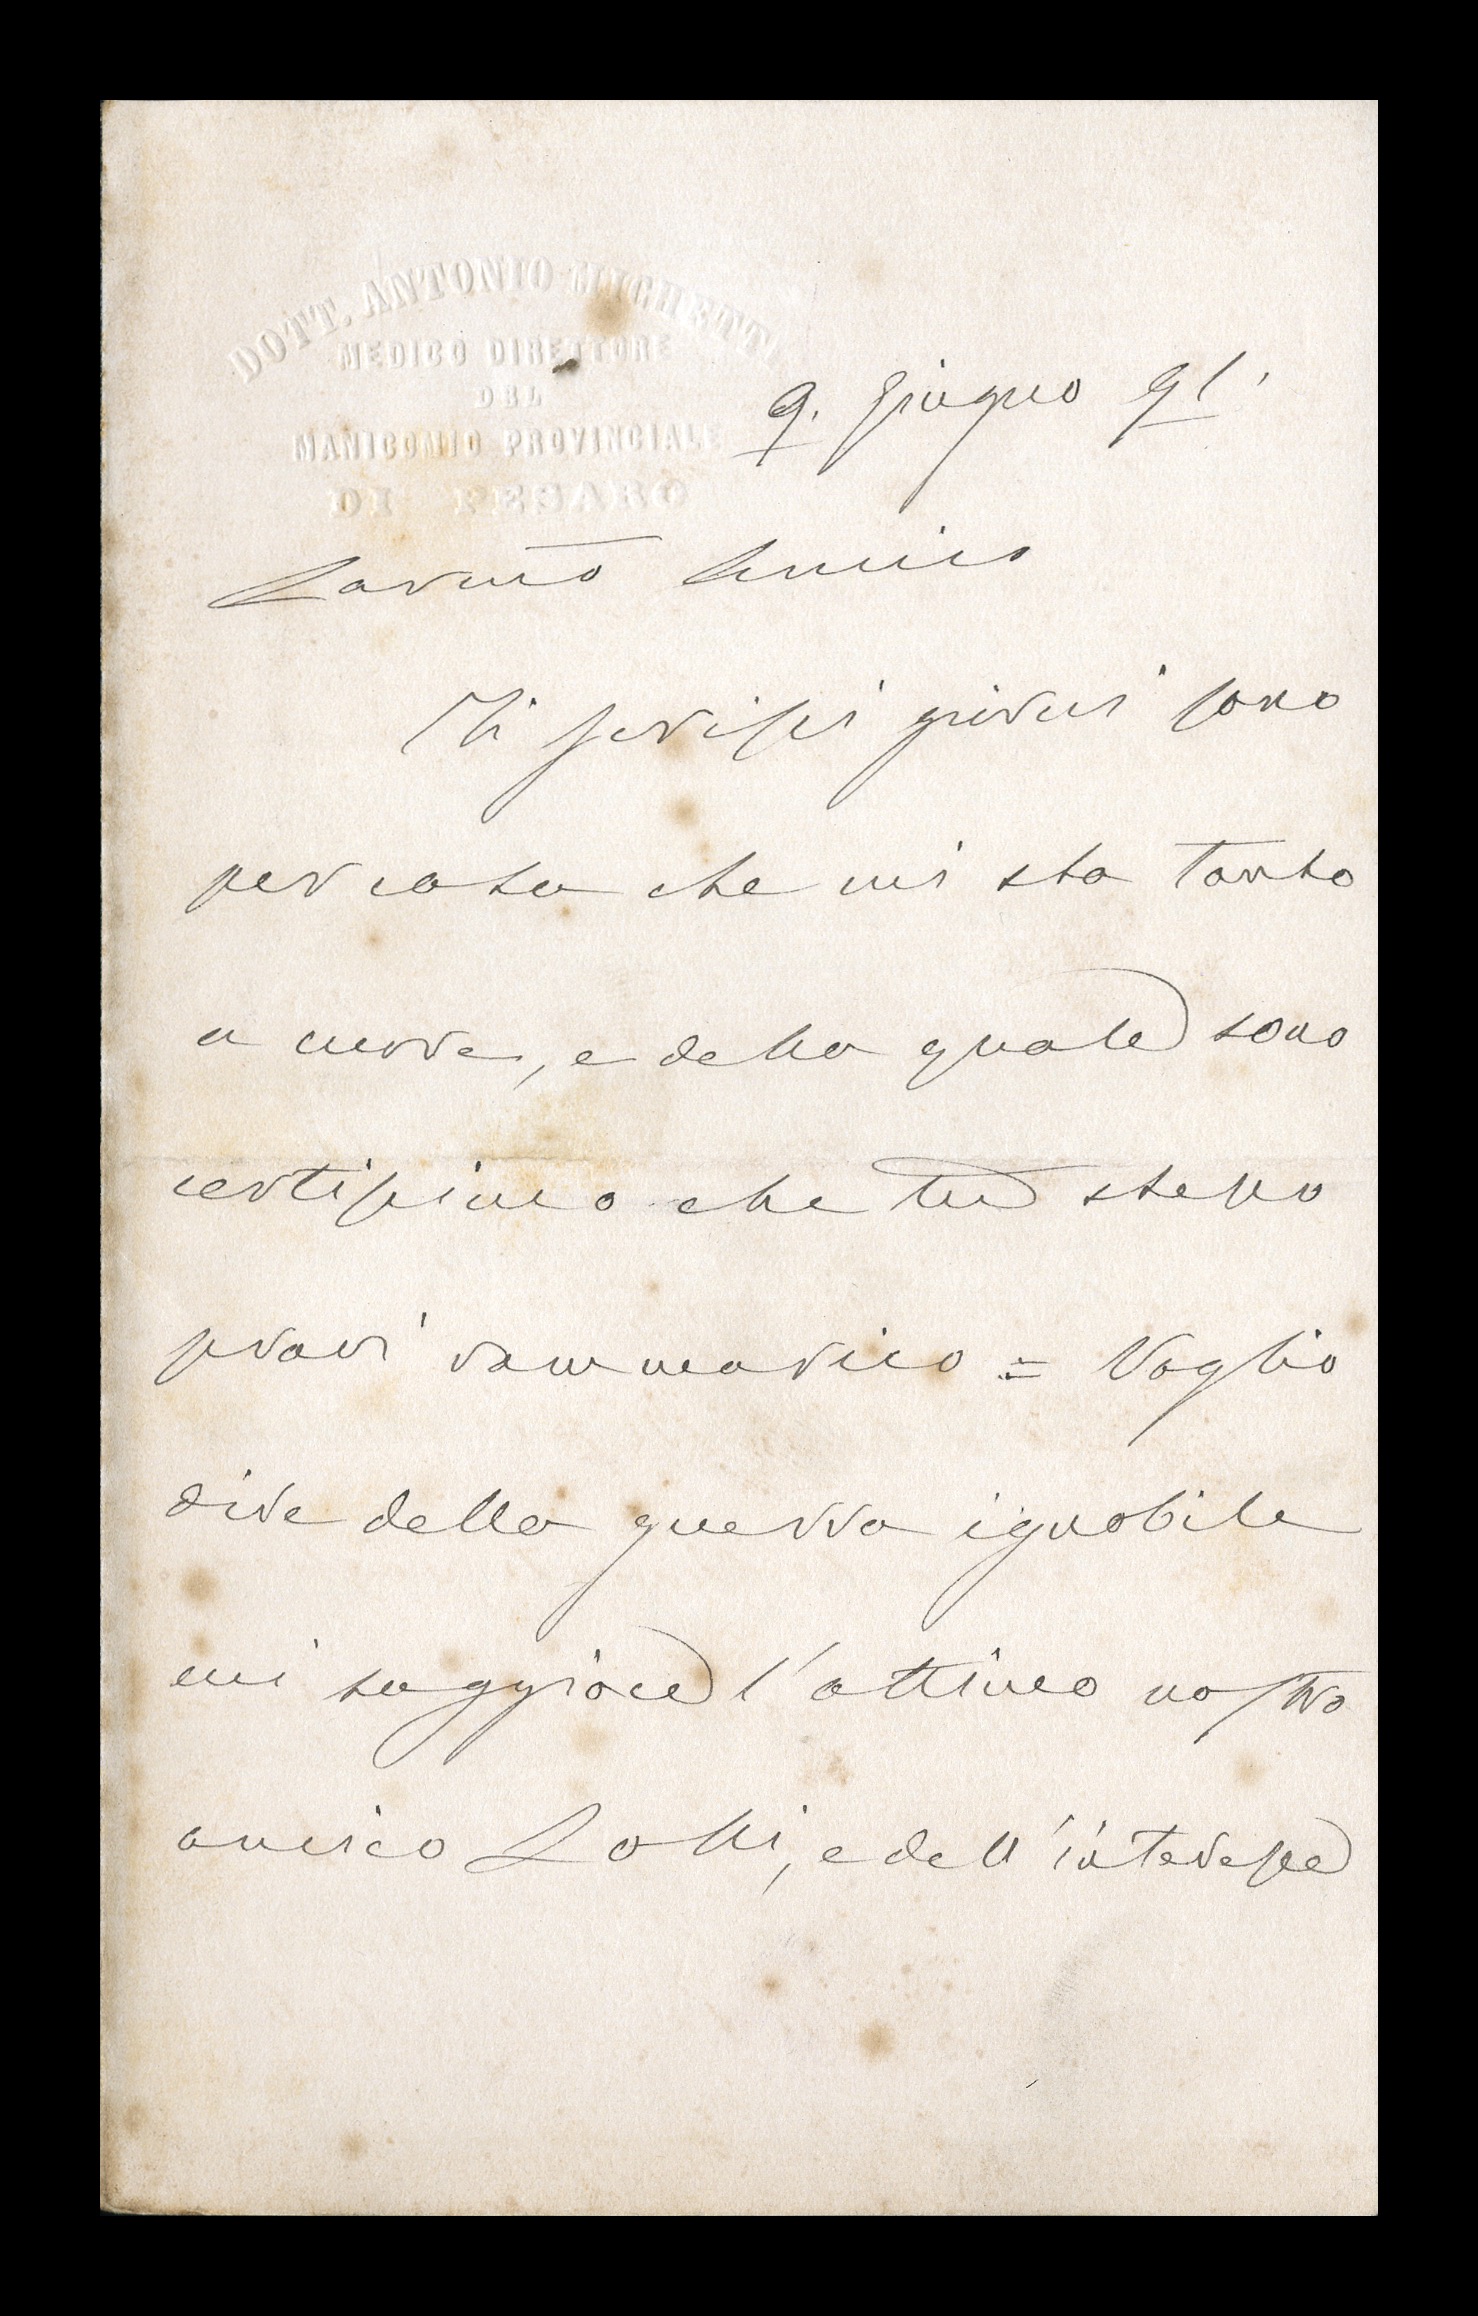 DOTT. ANTONIO MICHETTI
MEDICO DIRETTORE
DEL
MANICOMIO PROVINCIALE
DI PESARO
9. Giugno 91
Carmo Amico
Ti scrissi giorni sono
per cosa che mi sta tanto
a cuore, e della quale sono
certissimo che tu stesso
provi rammarico = Voglio
dire della guerra ignobile
cui soggiace l'ottimo nostro
amico Lolli, e dell'interesse